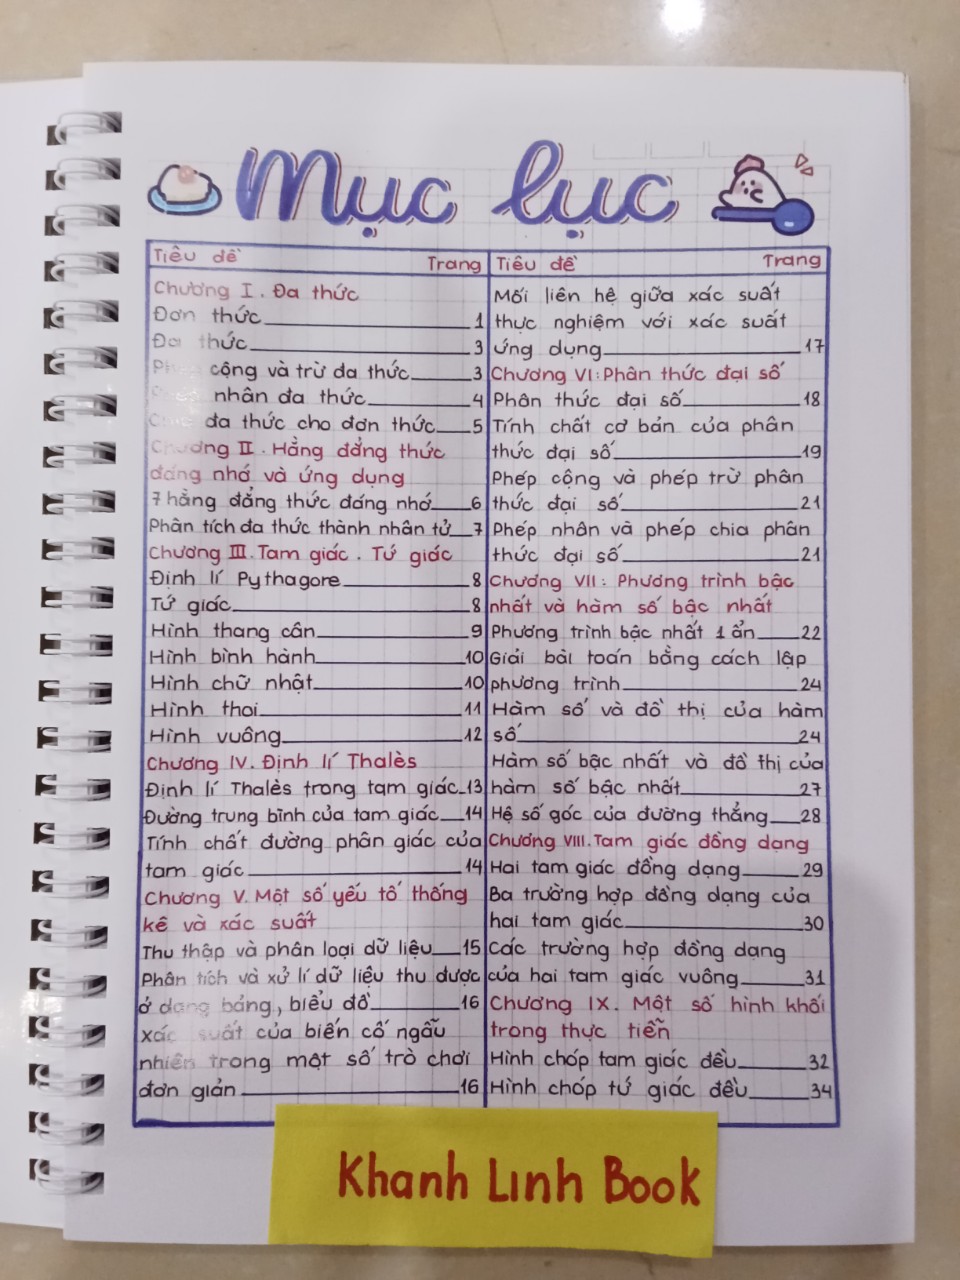 Mục lục
Tiêu đề Trang
Chương I. Đa thức
Đơn thức 1
Đa thức 3
cộng và trừ đa thức 3
nhân đa thức 4
đa thức cho đơn thức 5
Chương II. Hằng đẳng thức
đáng nhớ và ứng dụng
7 hằng đẳng thức đáng nhớ 6
Phân tích đa thức thành nhân tử 7
Chương III. Tam giác. Tứ giác
Định lí Pythagore 8
Tứ giác 8
Hình thang cân 9
Hình bình hành 10
Hình chữ nhật 10
Hình thoi 11
Hình vuông 12
Chương IV. Định lí Thalès
Định lí Thalès trong tam giác 13
Đường trung bình của tam giác 14
Tính chất đường phân giác của
tam giác 14
Chương V. Một số yếu tố thống
kê và xác suất
Thu thập và phân loại dữ liệu 15
Phân tích và xử lí dữ liệu thu được
ở dạng bảng, biểu đồ 16
xác suất của biến cố ngẫu
nhiên trong một số trò chơi
đơn giản 16
Tiêu đề Trang
Mối liên hệ giữa xác suất
thực nghiệm với xác suất
ứng dụng 17
Chương VI: Phân thức đại số
Phân thức đại số 18
Tính chất cơ bản của phân
thức đại số 19
Phép cộng và phép trừ phân
thức đại số 21
Phép nhân và phép chia phân
thức đại số 21
Chương VII: Phương trình bậc
nhất và hàm số bậc nhất
Phương trình bậc nhất 1 ẩn 22
Giải bài toán bằng cách lập
phương trình 24
Hàm số và đồ thị của hàm
số 24
Hàm số bậc nhất và đồ thị của
hàm số bậc nhất 27
Hệ số góc của đường thẳng 28
Chương VIII. Tam giác đồng dạng
Hai tam giác đồng dạng 29
Ba trường hợp đồng dạng của
hai tam giác 30
Các trường hợp đồng dạng
của hai tam giác vuông 31
Chương IX. Một số hình khối
trong thực tiễn
Hình chóp tam giác đều 32
Hình chóp tứ giác đều 34
Khanh Linh Book